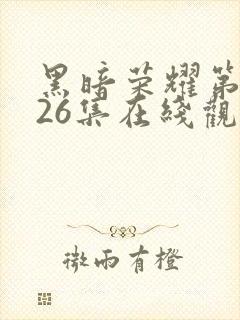 黑暗荣耀第
26集在线觀
微雨有橙